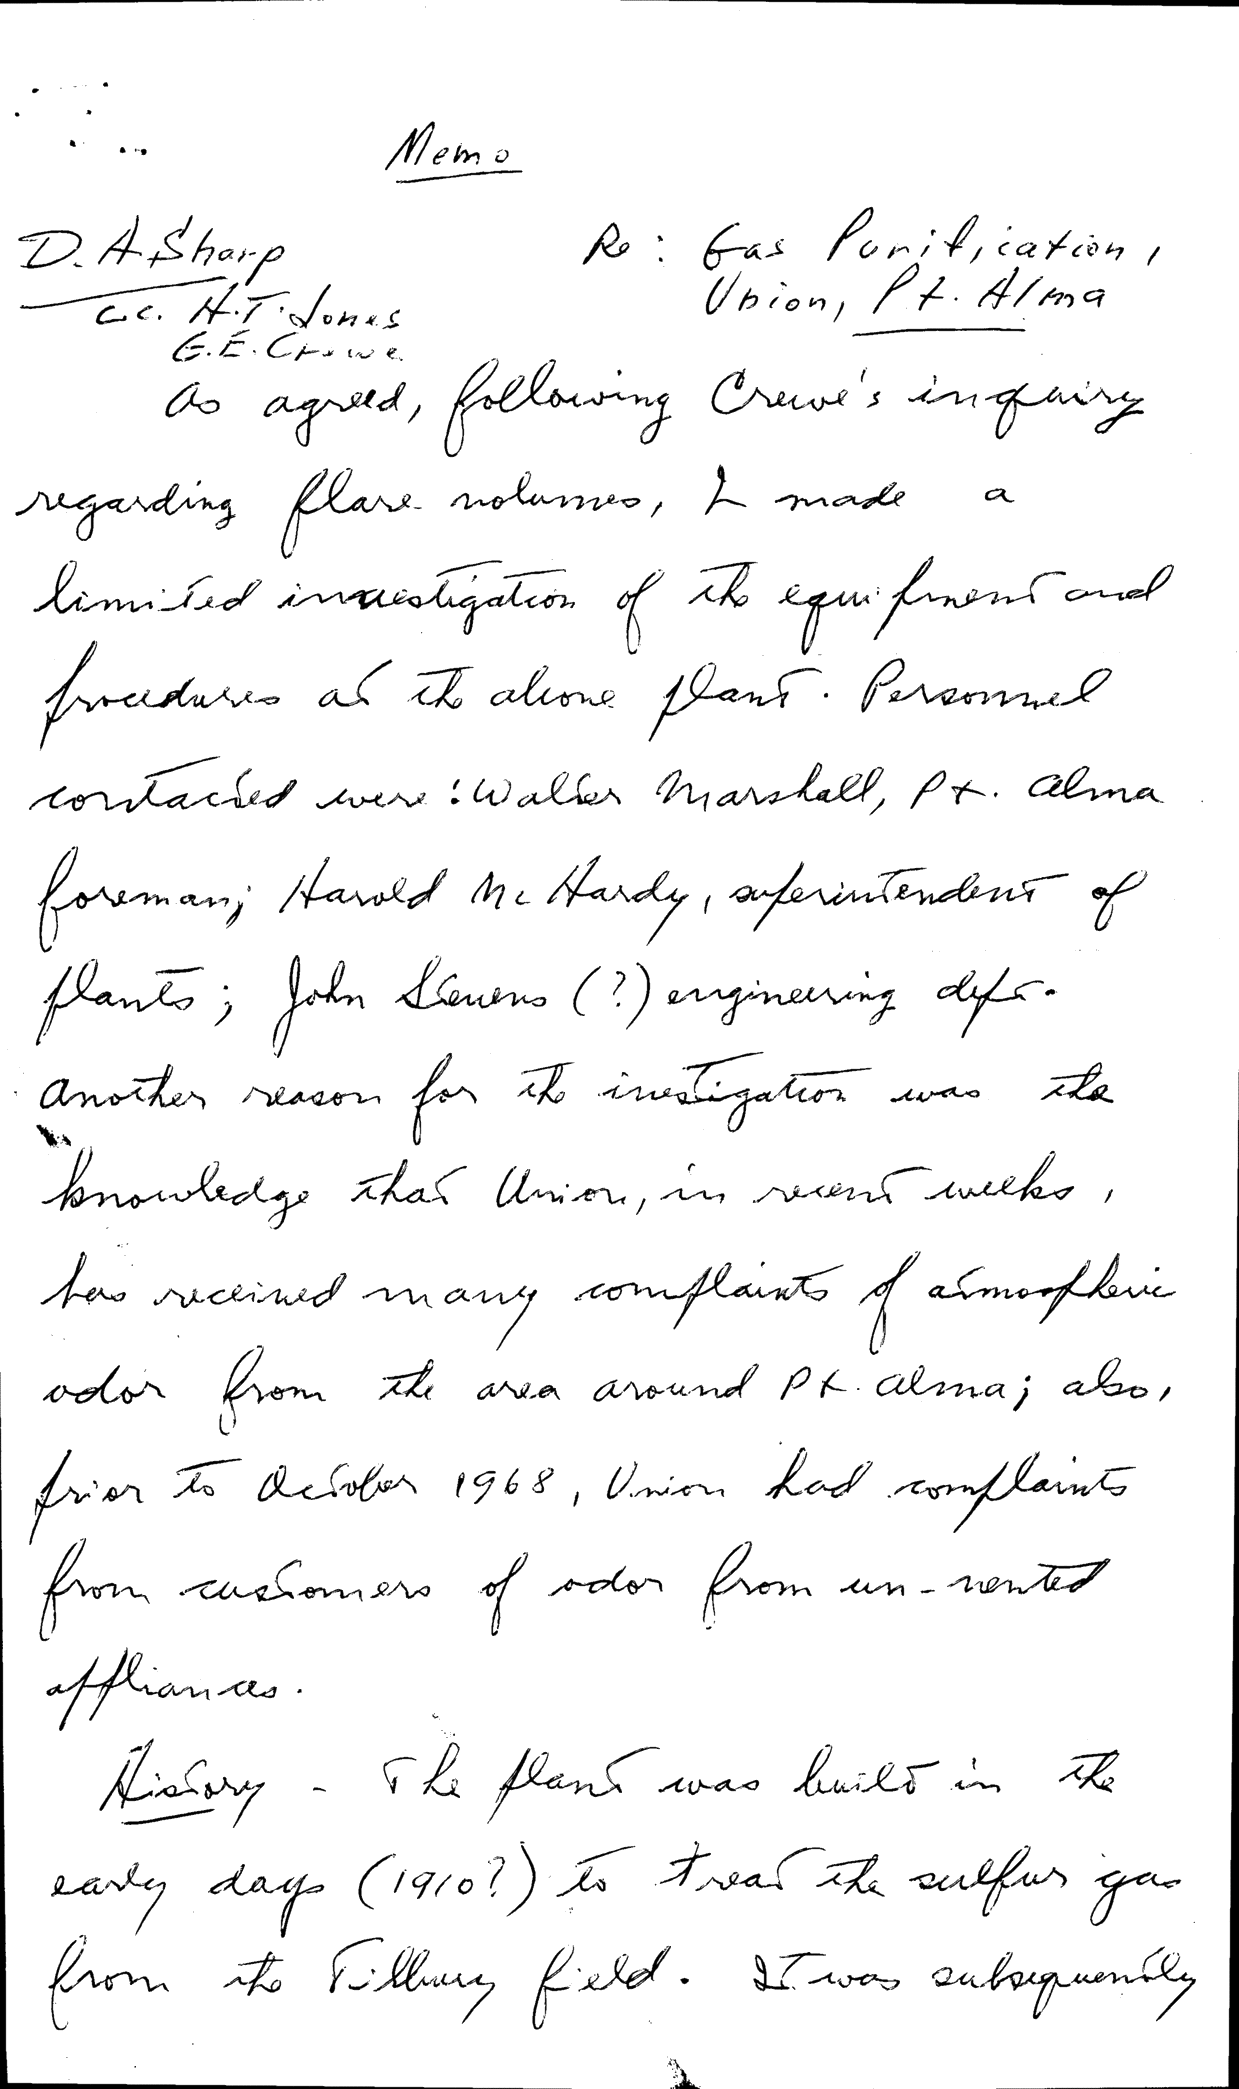 Memo
D. A. Sharp
Re: Gas Purification,
Union, Pt. Alma
c.c. H.T. Jones
G.E. Crewe
As agreed, following Crewe's inquiry
regarding flare volumes, I made a
limited investigation of the equipment and
procedures at the above plant. Personnel
contacted were: Walter Marshall, Pt. Alma
foreman; Harold McHardy, superintendent of
plants; John Stevens (?) engineering dept.
Another reason for the investigation was the
knowledge that Union, in recent weeks,
has received many complaints of atmospheric
odor from the area around Pt. Alma; also,
prior to October 1968, Union had complaints
from customers of odor from un-vented
appliances.
History - The plant was built in the
early days (1910?) to treat the sulfur gas
from the Tilbury field. It was subsequently